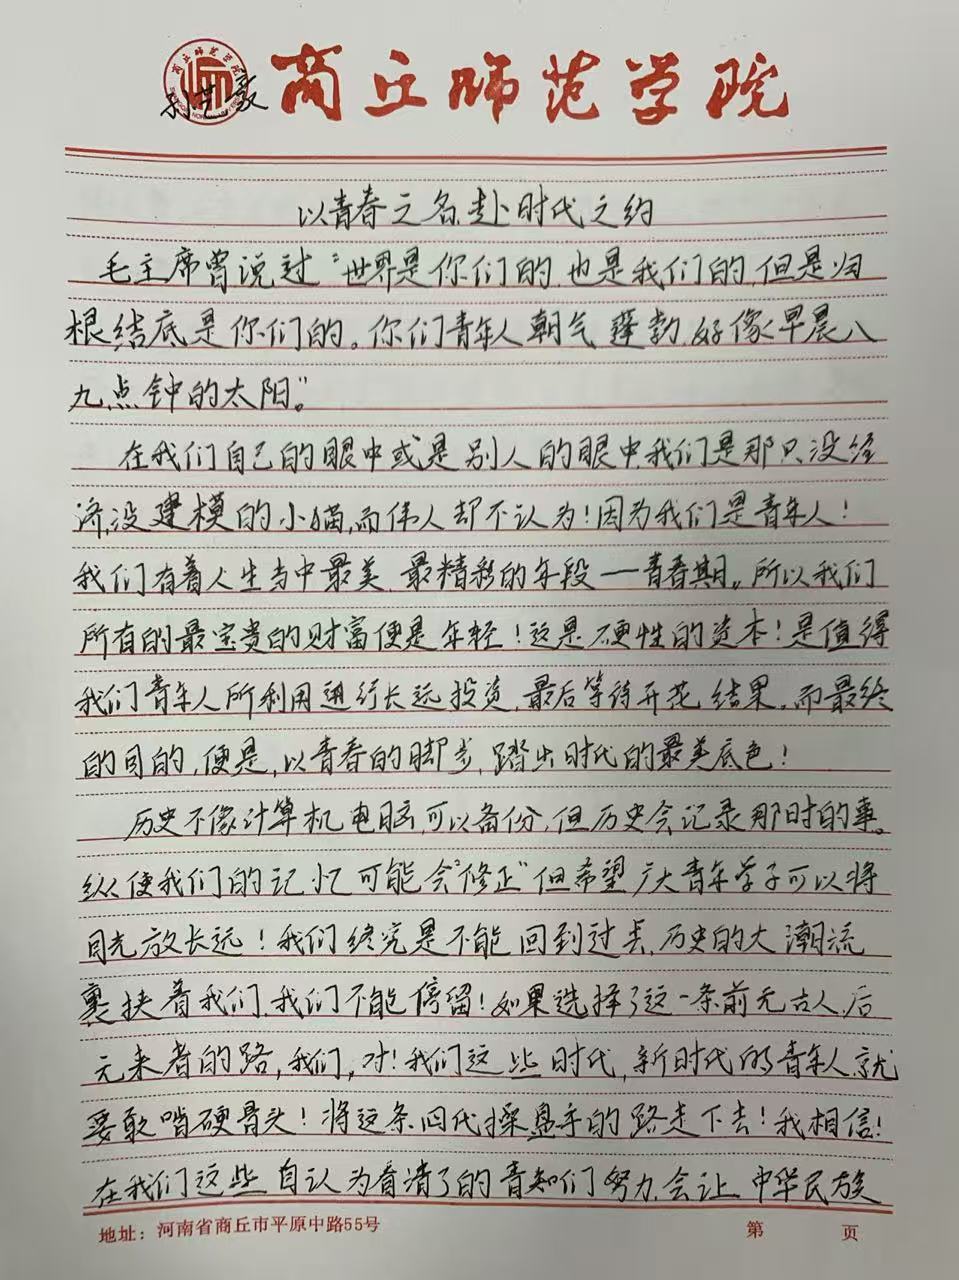 商丘师范学院
以青春之名,赴时代之约
毛主席曾说过"世界是你们的,也是我们的,但是归
根结底是你们的。你们青年人朝气蓬勃,好像早晨八
九点钟的太阳。"
在我们自己的眼中或是别人的眼中,我们是那只没经
济,没建模的小猫,而伟人却不认为!因为我们是青年人!
我们有着人生当中最美,最精彩的年段——青春期。所以我们
所有的最宝贵的财富便是年轻!这是硬性的资本!是值得
我们青年人所利用进行长远投资,最后等待开花结果。而最终
的目的,便是,以青春的脚步,踏出时代的最美底色!
历史不像计算机电脑,可以备份,但历史会记录那时的事。
纵使我们的记忆可能会"修正"但希望广大青年学子可以将
目光放长远!我们终究是不能回到过去,历史的大潮流
裹挟着我们,我们不能停留!如果选择了这一条前无古人,后
无来者的路,我们,对!我们这些时代,新时代的青年人,就
要敢啃硬骨头!将这条四代操盘手的路走下去!我相信!
在我们这些自认为看清了的青知们努力,会让中华民族
地址:河南省商丘市平原中路55号
第 页